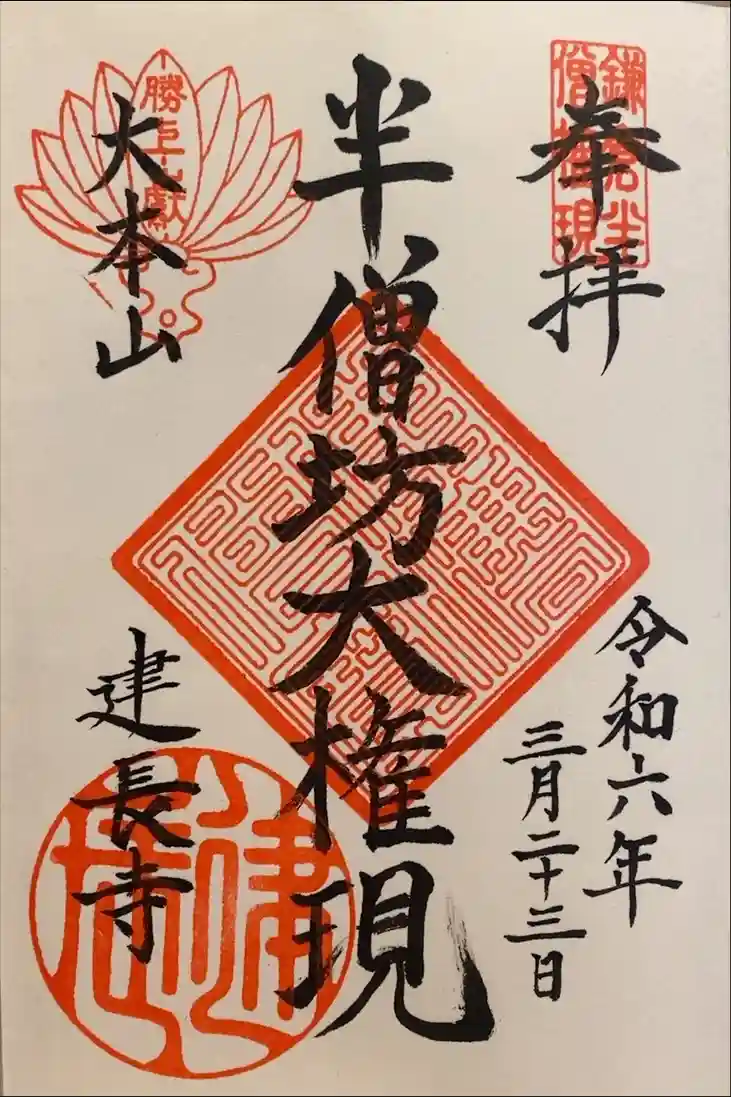 奉拝
令和六年
三月二十三日
半僧坊大権現
大本山
建長寺
鎌倉半
僧権現